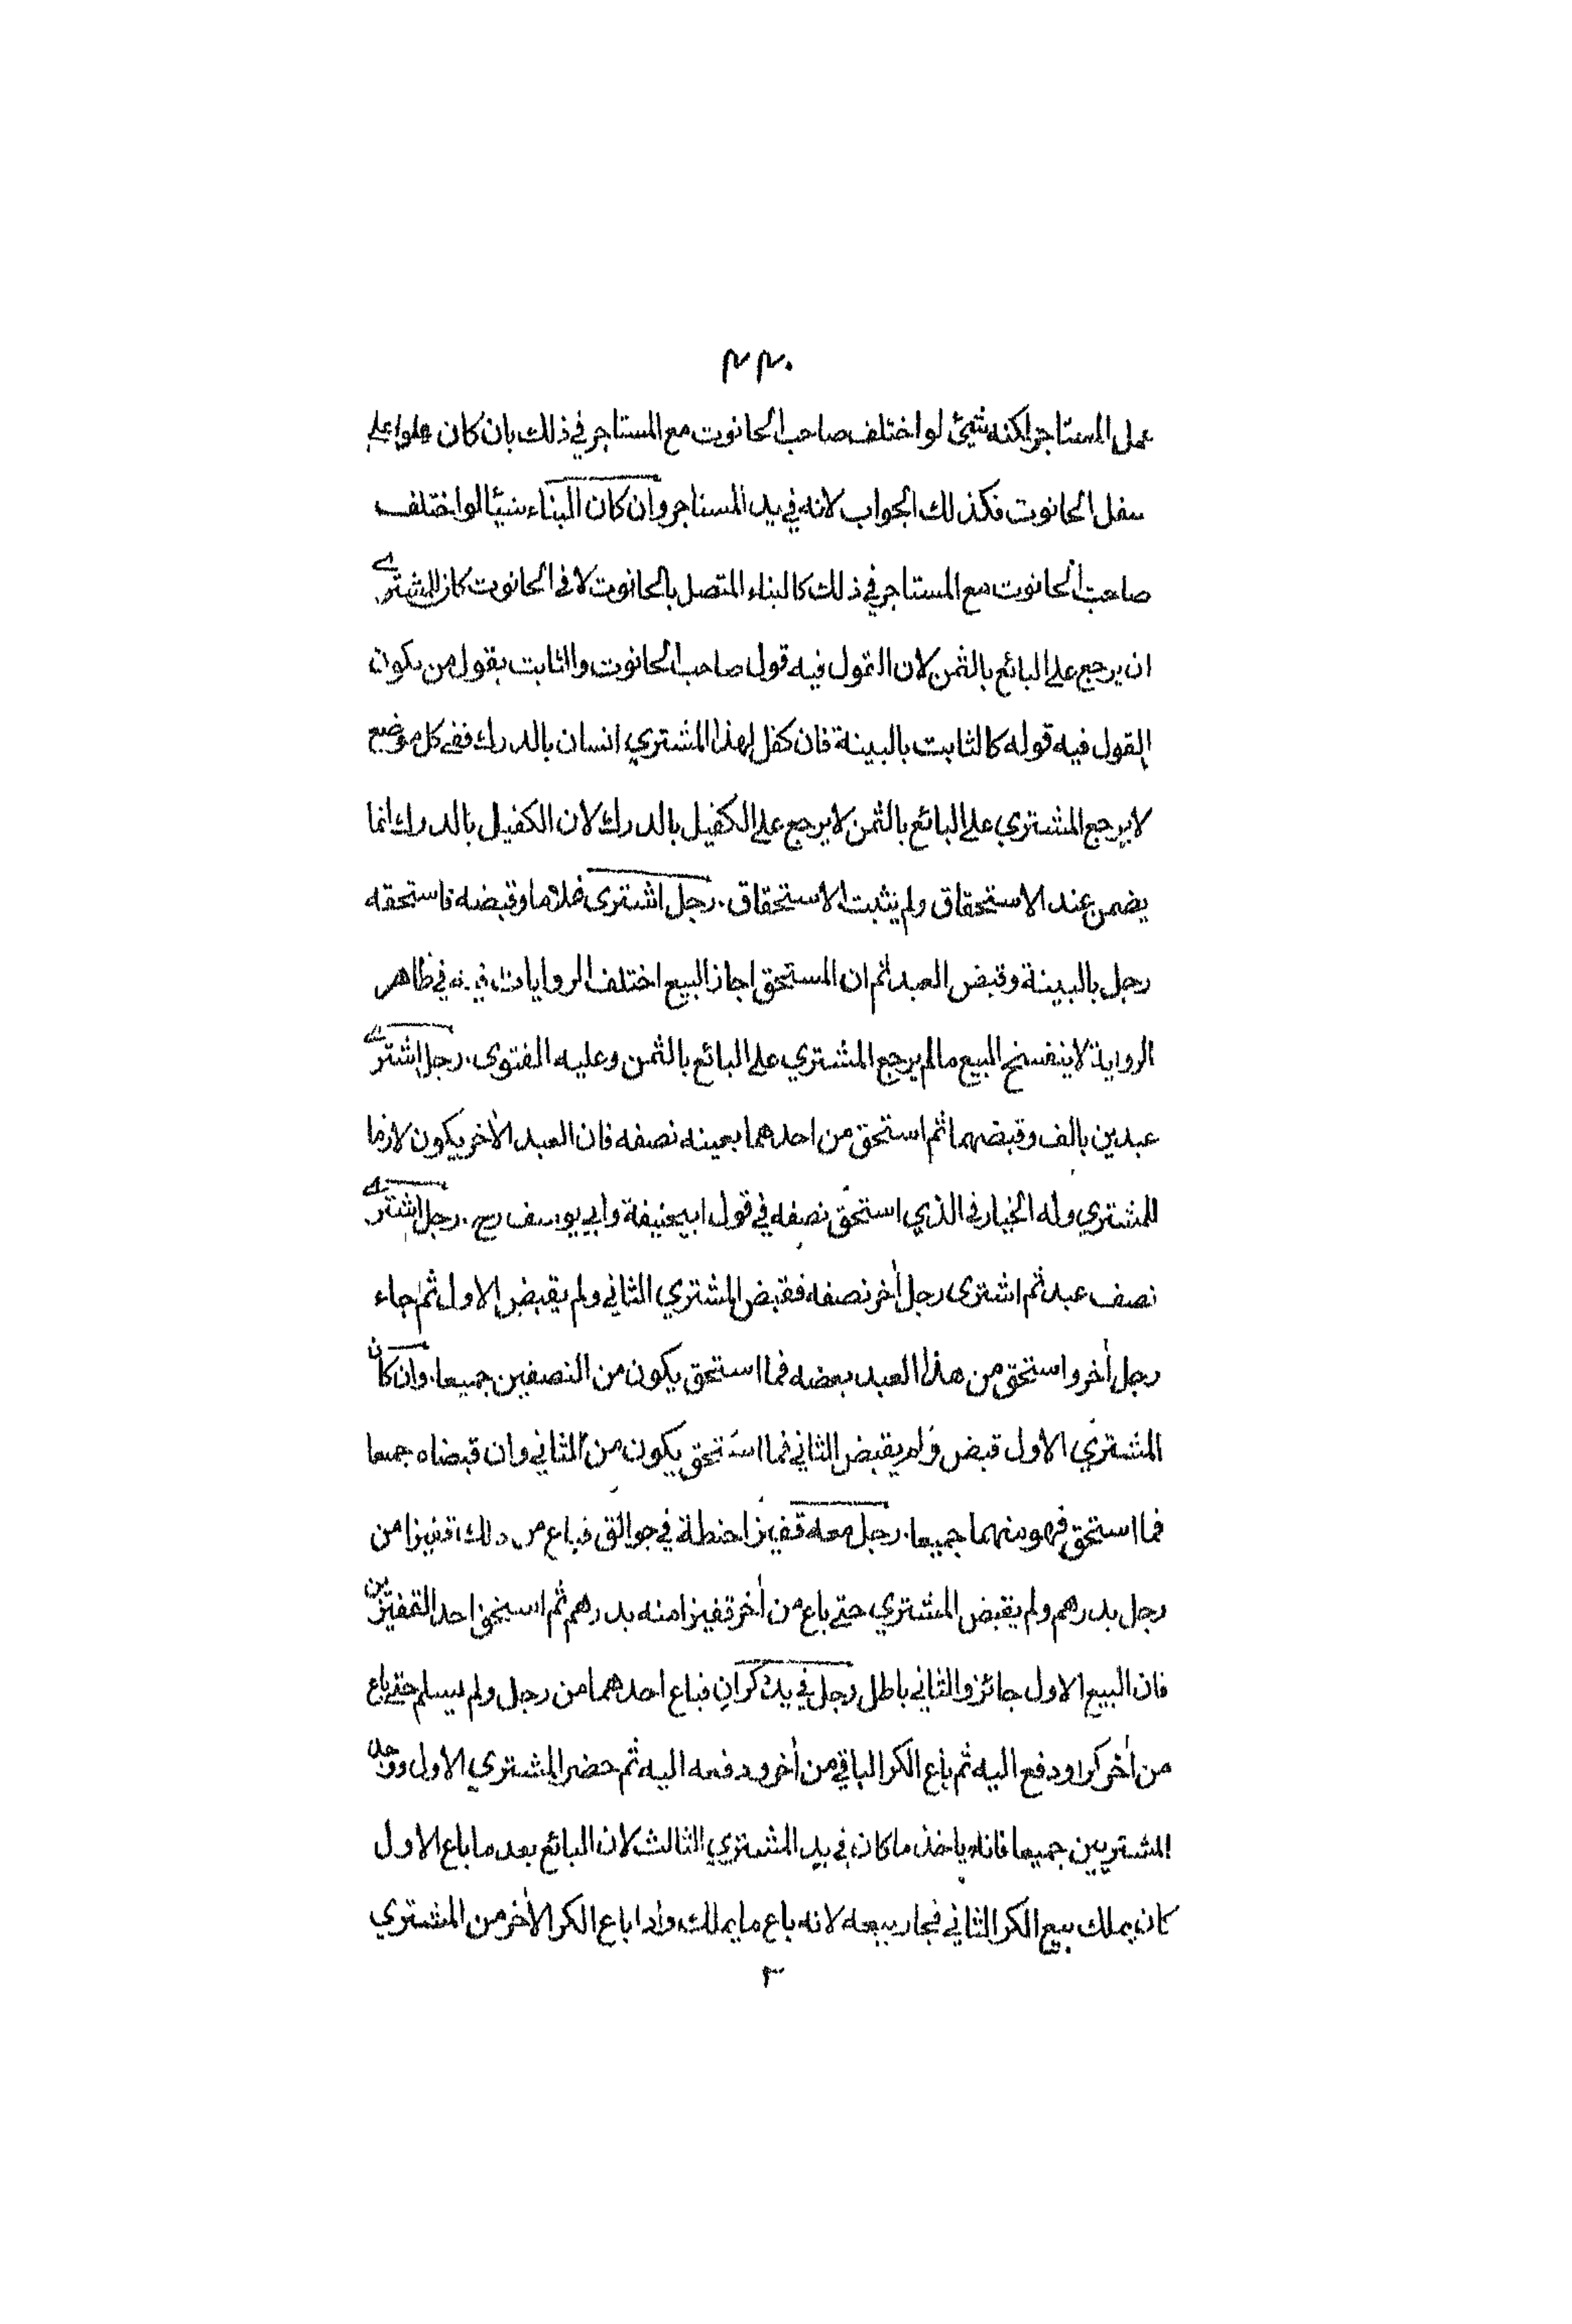 ٢٢٠
عمل المستاجر لكنه شيئ لو اختلف صاحب الحانوت مع المستاجر في ذلك بان كان علوا على
سفل الحانوت فكذلك الجواب لانه في يد المستاجر وان كان البناء شيئا لو اختلف
صاحب الحانوت مع المستاجر في ذلك كالبناء المتصل بالحانوت لا في الحانوت كان للمشتري
ان يرجع على البائع بالثمن لان القول فيه قول صاحب الحانوت والثابت بقول من يكون
القول فيه قوله كالثابت بالبينة فان كفل لهذا المشتري انسان بالدرك ففي كل موضع
لا يرجع المشتري على البائع بالثمن لا يرجع على الكفيل بالدرك لان الكفيل بالدرك انما
يضمن عند الاستحقاق ولم يثبت الاستحقاق. رجل اشترى غلاما وقبضه فاستحقه
رجل بالبينة وقبض العبد ثم ان المستحق اجاز البيع اختلف الروايات فيه في ظاهر
الرواية لا ينفسخ البيع ما لم يرجع المشتري على البائع بالثمن وعليه الفتوى. رجل اشترى
عبدين بالف وقبضهما ثم استحق من احدهما بعينه نصفه فان العبد الأخر يكون لازما
للمشتري وله الخيار في الذي استحق نصفه في قول ابيحنيفة وابي يوسف رح. رجل اشترى
نصف عبد ثم اشترى رجل أخر نصفه فقبض المشتري الثاني ولم يقبض الاول ثم جاء
رجل أخر واستحق من هذا العبد بعضه فما استحق يكون من النصفين جميعا. وان كان
المشتري الاول قبض ولم يقبض الثاني فما استحق يكون من الثاني وان قبضاه جميعا
فما استحق فهو منهما جميعا. رجل معه قفيزا حنطة في جوالق فباع من ذلك قفيزا من
رجل بدرهم ولم يقبض المشتري حتى باع من أخر قفيزا منه بدرهم ثم استحق احد القفيزين
فان البيع الاول جائز والثاني باطل رجل في يده كران فباع احدهما من رجل ولم يسلم حتى باع
من أخر كرا ودفع اليه ثم باع الكر الباقي من أخر ودفعه اليه ثم حضر المشتري الاول ووجد
المشتريين جميعا فانه ياخذ ما كان في يد المشتري الثالث لان البائع بعد ما باع الاول
كان يملك بيع الكر الثاني فجاز بيعه لانه باع ما يملك واذا باع الكر الأخر من المشتري